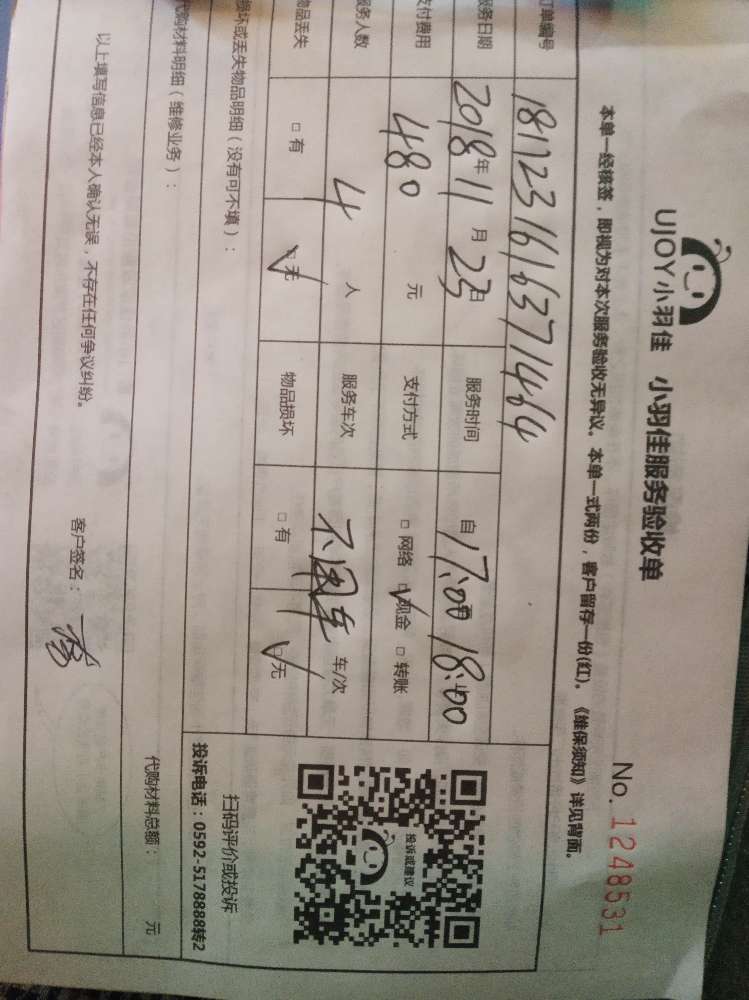 UJOY小羽佳 小羽佳服务验收单
No. 1248531
本单一经核签，即视为对本次服务验收无异议。本单一式两份，客户留存一份(红)。《维保须知》详见背面。
订单编号
服务日期 2018年11月23日 服务时间 自17:00 18:00
支付费用 480元 支付方式 □网络 ☑现金 □转账
服务人数 4人 服务车次 不用车 车/次
物品丢失 □有 ☑无 物品损坏 □有 ☑无
损坏或丢失物品明细（没有可不填）：
投诉或建议
扫码评价或投诉
投诉电话：0592-5178888转2
代购材料明细（维修业务）：
代购材料总额： 元
以上填写信息已经本人确认无误，不存在任何争议纠纷。
客户签名：